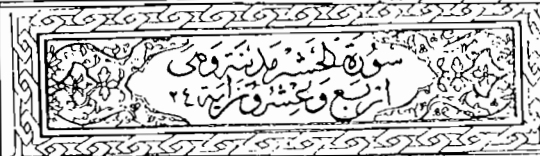 سورة الحشر مدنية وهي
أربع وعشرون آية ٢٤